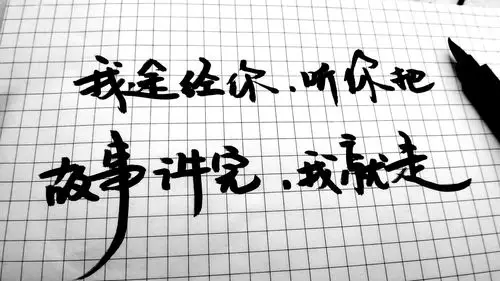 我途经你.听你把
故事讲完.我就走